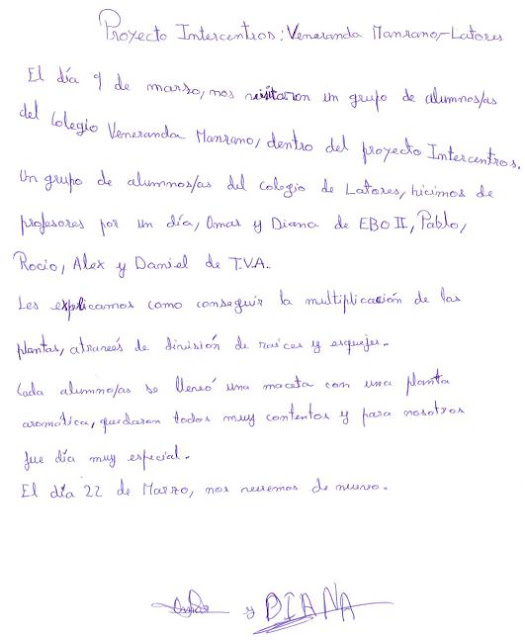 Proyecto Intercentros: Veneranda Manzano-Latores
El día 9 de marzo, nos visitaron un grupo de alumnos/as
del Colegio Veneranda Manzano, dentro del proyecto Intercentros.
Un grupo de alumnos/as del colegio de Latores, hicimos de
profesores por un día, Omar y Diana de EBO II, Pablo,
Rocio, Alex y Daniel de T.V.A..
Les explicamos como conseguir la multiplicación de las
plantas, atraveés de división de raices y esquejes.
Cada alumno/as se llevó una maceta con una planta
aromática, quedaron todos muy contentos y para nosotros
fue día muy especial.
El día 22 de Marzo, nos veremos de nuevo.
y DIANA